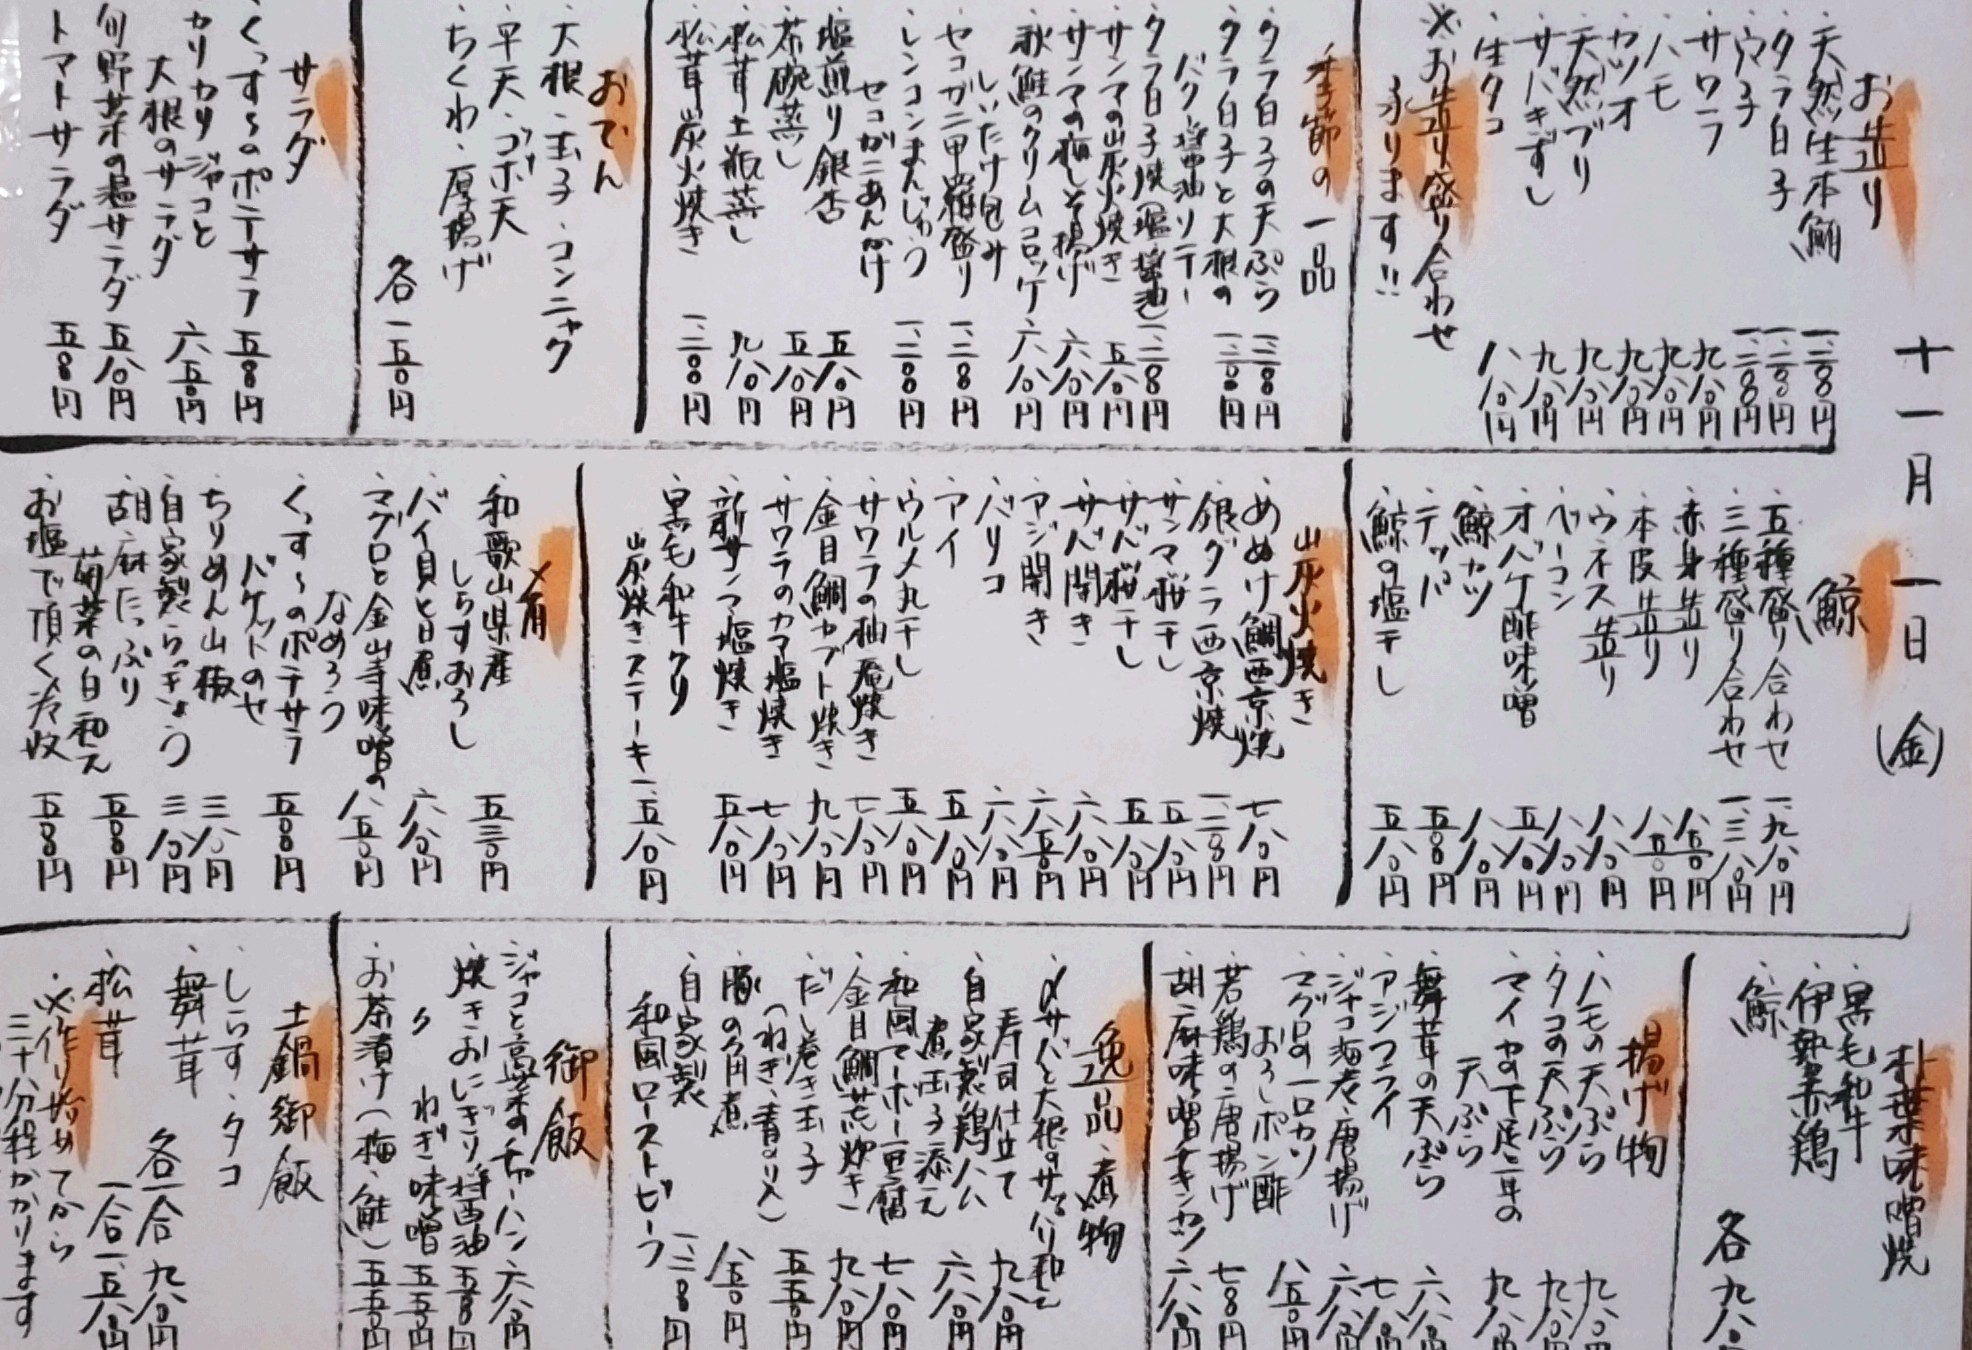 十一月一日(金)
お造り
・天然生本鮪 一、二八〇円
・タラ白子 一、二八〇円
・ウニ 一、二八〇円
・サワラ 九八〇円
・ハモ 九八〇円
・カツオ 九八〇円
・天然ブリ 九八〇円
・サバきずし 九八〇円
・生タコ 八八〇円
※お造り盛り合わせ
承ります!!
季節の一品
・タラ白子の天ぷら 一、二八〇円
・タラ白子と大根の
バター醤油ソテー 一、二八〇円
・タラ白子焼(塩・醤油) 一、二八〇円
・サンマの山炭火焼き 五八〇円
・サンマの梅しそ揚げ 六八〇円
・秋鮭のクリームコロッケ 六八〇円
しいたけ包み
・セコガニ甲羅盛り 一、二八〇円
・レンコンまんじゅう
セコガニあんかけ 一、二八〇円
・塩煎り銀杏 五八〇円
・茶碗蒸し 五八〇円
・松茸土瓶蒸し 九八〇円
・松茸炭火焼き 一、二八〇円
おでん
・大根・玉子・コンニャク
・平天・ゴボ天
・ちくわ・厚揚げ
各一五〇円
サラダ
・くっす〜のポテサラ 五八〇円
・カリカリジャコと
大根のサラダ 六五〇円
・旬野菜の塩サラダ 五八〇円
・トマトサラダ 五八〇円
鯨
・五種盛り合わせ 一、九八〇円
・三種盛り合わせ 一、三八〇円
・赤身造り 八五〇円
・本皮造り 八五〇円
・ウネス造り 八八〇円
・ベーコン 八八〇円
・オバケ酢味噌 五八〇円
・鯨カツ 八八〇円
・テッパ 五八〇円
・鯨の塩干し 五八〇円
山炭火焼き
・めぬけ鯛西京焼 七八〇円
・銀ダラ西京焼 一、二八〇円
・サンマ桜干し 五八〇円
・サバ桜干し 五八〇円
・サバ開き 六八〇円
・アジ開き 六五〇円
・バリコ 六八〇円
・アイ 五八〇円
・ウルメ丸干し 五八〇円
・サワラの柚庵焼き 七八〇円
・金目鯛カブト焼き 九八〇円
・サワラのカマ塩焼き 七八〇円
・新サンマ塩焼き 五八〇円
・黒毛和牛クリ
山炭焼きステーキ 一、五八〇円
〆肴
・和歌山県産
しらすおろし 五三〇円
・バイ貝と旨煮 六八〇円
・マグロと金山寺味噌の
なめろう 八五〇円
・くっす〜のポテサラ
バケットのせ 五八〇円
・ちりめん山椒 三八〇円
・自家製らっきょう 三八〇円
・胡麻たっぷり
菊菜の白和え 五八〇円
・お塩で頂く冷奴 五八〇円
朴葉味噌焼
・黒毛和牛
・伊勢赤鶏
・鯨
各九八〇
揚げ物
・ハモの天ぷら 九八〇円
・タコの天ぷら 九八〇円
・マイカの下足二耳の
天ぷら 九八〇円
・舞茸の天ぷら 六八〇円
・アジフライ 七八〇円
・ジャコ海老・唐揚げ 六八〇円
・マグロの一口カツ
おろしポン酢 八五〇円
・若鶏の唐揚げ 七八〇円
・胡麻味噌チキンカツ 六八〇円
逸品・煮物
・〆サバと大根のサッパリ和え
寿司仕立て 九八〇円
・自家製鶏ハム
煮玉子添え 六八〇円
・和風マーボー豆腐 七八〇円
・金目鯛荒炊き 九八〇円
・だし巻き玉子
(ねぎ・青のり入) 五五〇円
・豚の角煮 八五〇円
・自家製
和風ローストビーフ 一、二八〇円
御飯
・ジャコと高菜のチャーハン 六八〇円
・焼きおにぎり醤油 五五〇円
・〃ねぎ味噌 五五〇円
・お茶漬け(梅・鮭) 五五〇円
土鍋御飯
・しらす・タコ
・舞茸 各一合九八〇円
・松茸 一合一、五八〇円
※作り始めてから
三十分程かかります